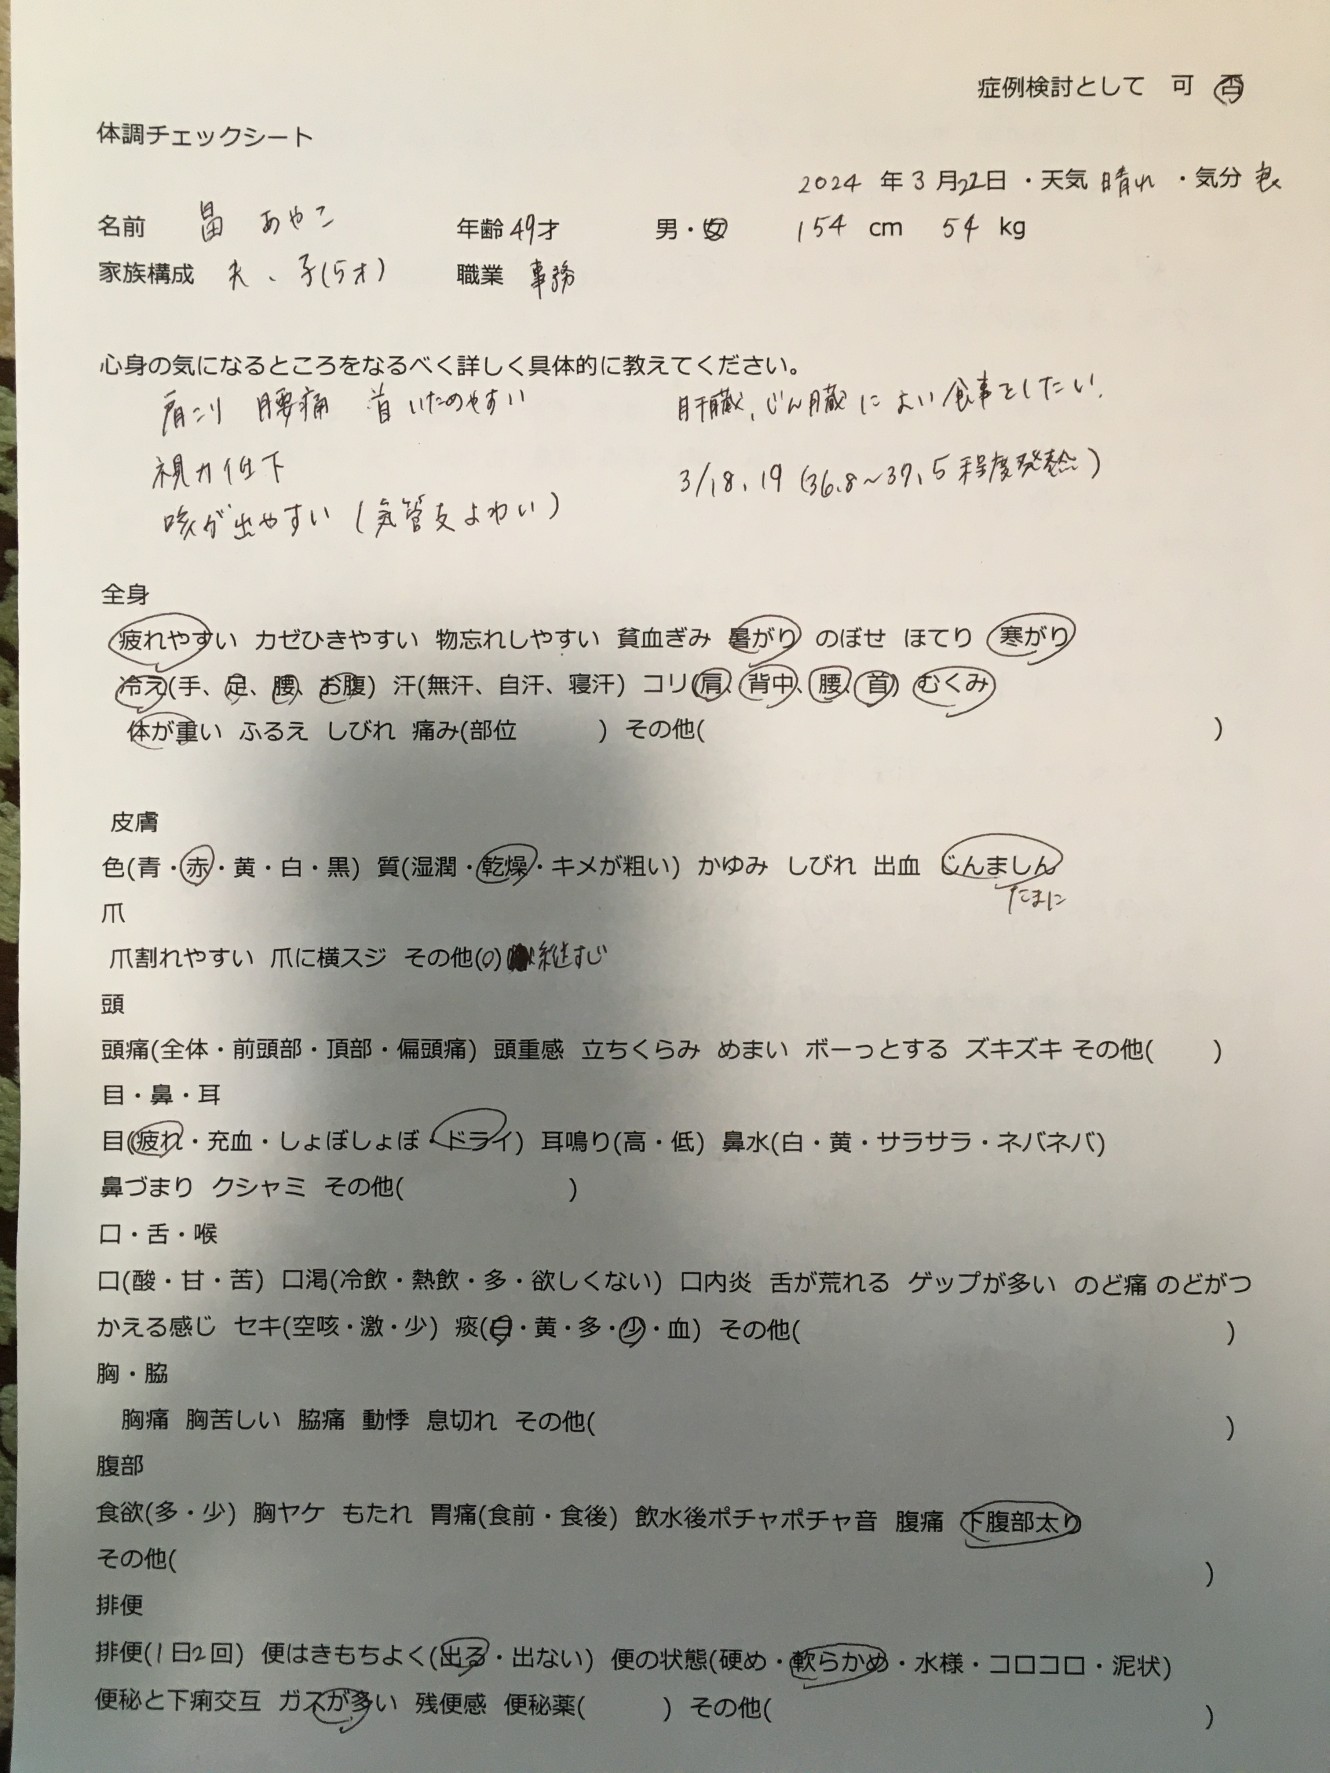 症例検討として 可 否
体調チェックシート
2024 年 3 月 22日 ・天気 晴れ ・気分 良
名前 畠 あやこ 年齢 49才 男・女 154 cm 54 kg
家族構成 夫、子(5才) 職業 事務
心身の気になるところをなるべく詳しく具体的に教えてください。
肩こり 腰痛 首いためやすい 肝臓、じん臓によい食事をしたい。
視力低下 3/18、19 (36.8～37.5程度発熱)
咳が出やすい (気管支よわい)
全身
疲れやすい カゼひきやすい 物忘れしやすい 貧血ぎみ 暑がり のぼせ ほてり 寒がり
冷え(手、足、腰、お腹) 汗(無汗、自汗、寝汗) コリ(肩、背中、腰、首) むくみ
体が重い ふるえ しびれ 痛み(部位 ) その他( )
皮膚
色(青・赤・黄・白・黒) 質(湿潤・乾燥・キメが粗い) かゆみ しびれ 出血 じんましん
たまに
爪
爪割れやすい 爪に横スジ その他(0) 縦すじ
頭
頭痛(全体・前頭部・頂部・偏頭痛) 頭重感 立ちくらみ めまい ボーっとする ズキズキ その他( )
目・鼻・耳
目(疲れ・充血・しょぼしょぼ・ドライ) 耳鳴り(高・低) 鼻水(白・黄・サラサラ・ネバネバ)
鼻づまり クシャミ その他( )
口・舌・喉
口(酸・甘・苦) 口渇(冷飲・熱飲・多・欲しくない) 口内炎 舌が荒れる ゲップが多い のど痛 のどがつ
かえる感じ セキ(空咳・激・少) 痰(白・黄・多・少・血) その他( )
胸・脇
胸痛 胸苦しい 脇痛 動悸 息切れ その他( )
腹部
食欲(多・少) 胸ヤケ もたれ 胃痛(食前・食後) 飲水後ポチャポチャ音 腹痛 下腹部太り
その他( )
排便
排便(1日2回) 便はきもちよく(出る・出ない) 便の状態(硬め・軟らかめ・水様・コロコロ・泥状)
便秘と下痢交互 ガスが多い 残便感 便秘薬( ) その他( )